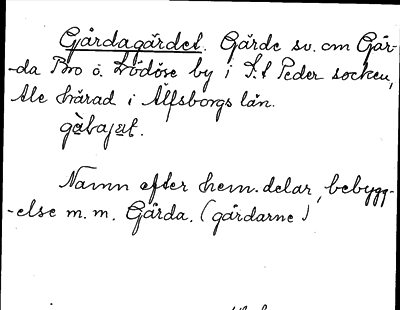 Gårdagärdet. Gärde sv. om Går-
-da Bro ö. Lödöse by i S:t Peder socken,
Ale härad i Älfsborgs län.
Namn efter hem.delar, bebygg-
-else m.m. Gårda. (gårdarne)